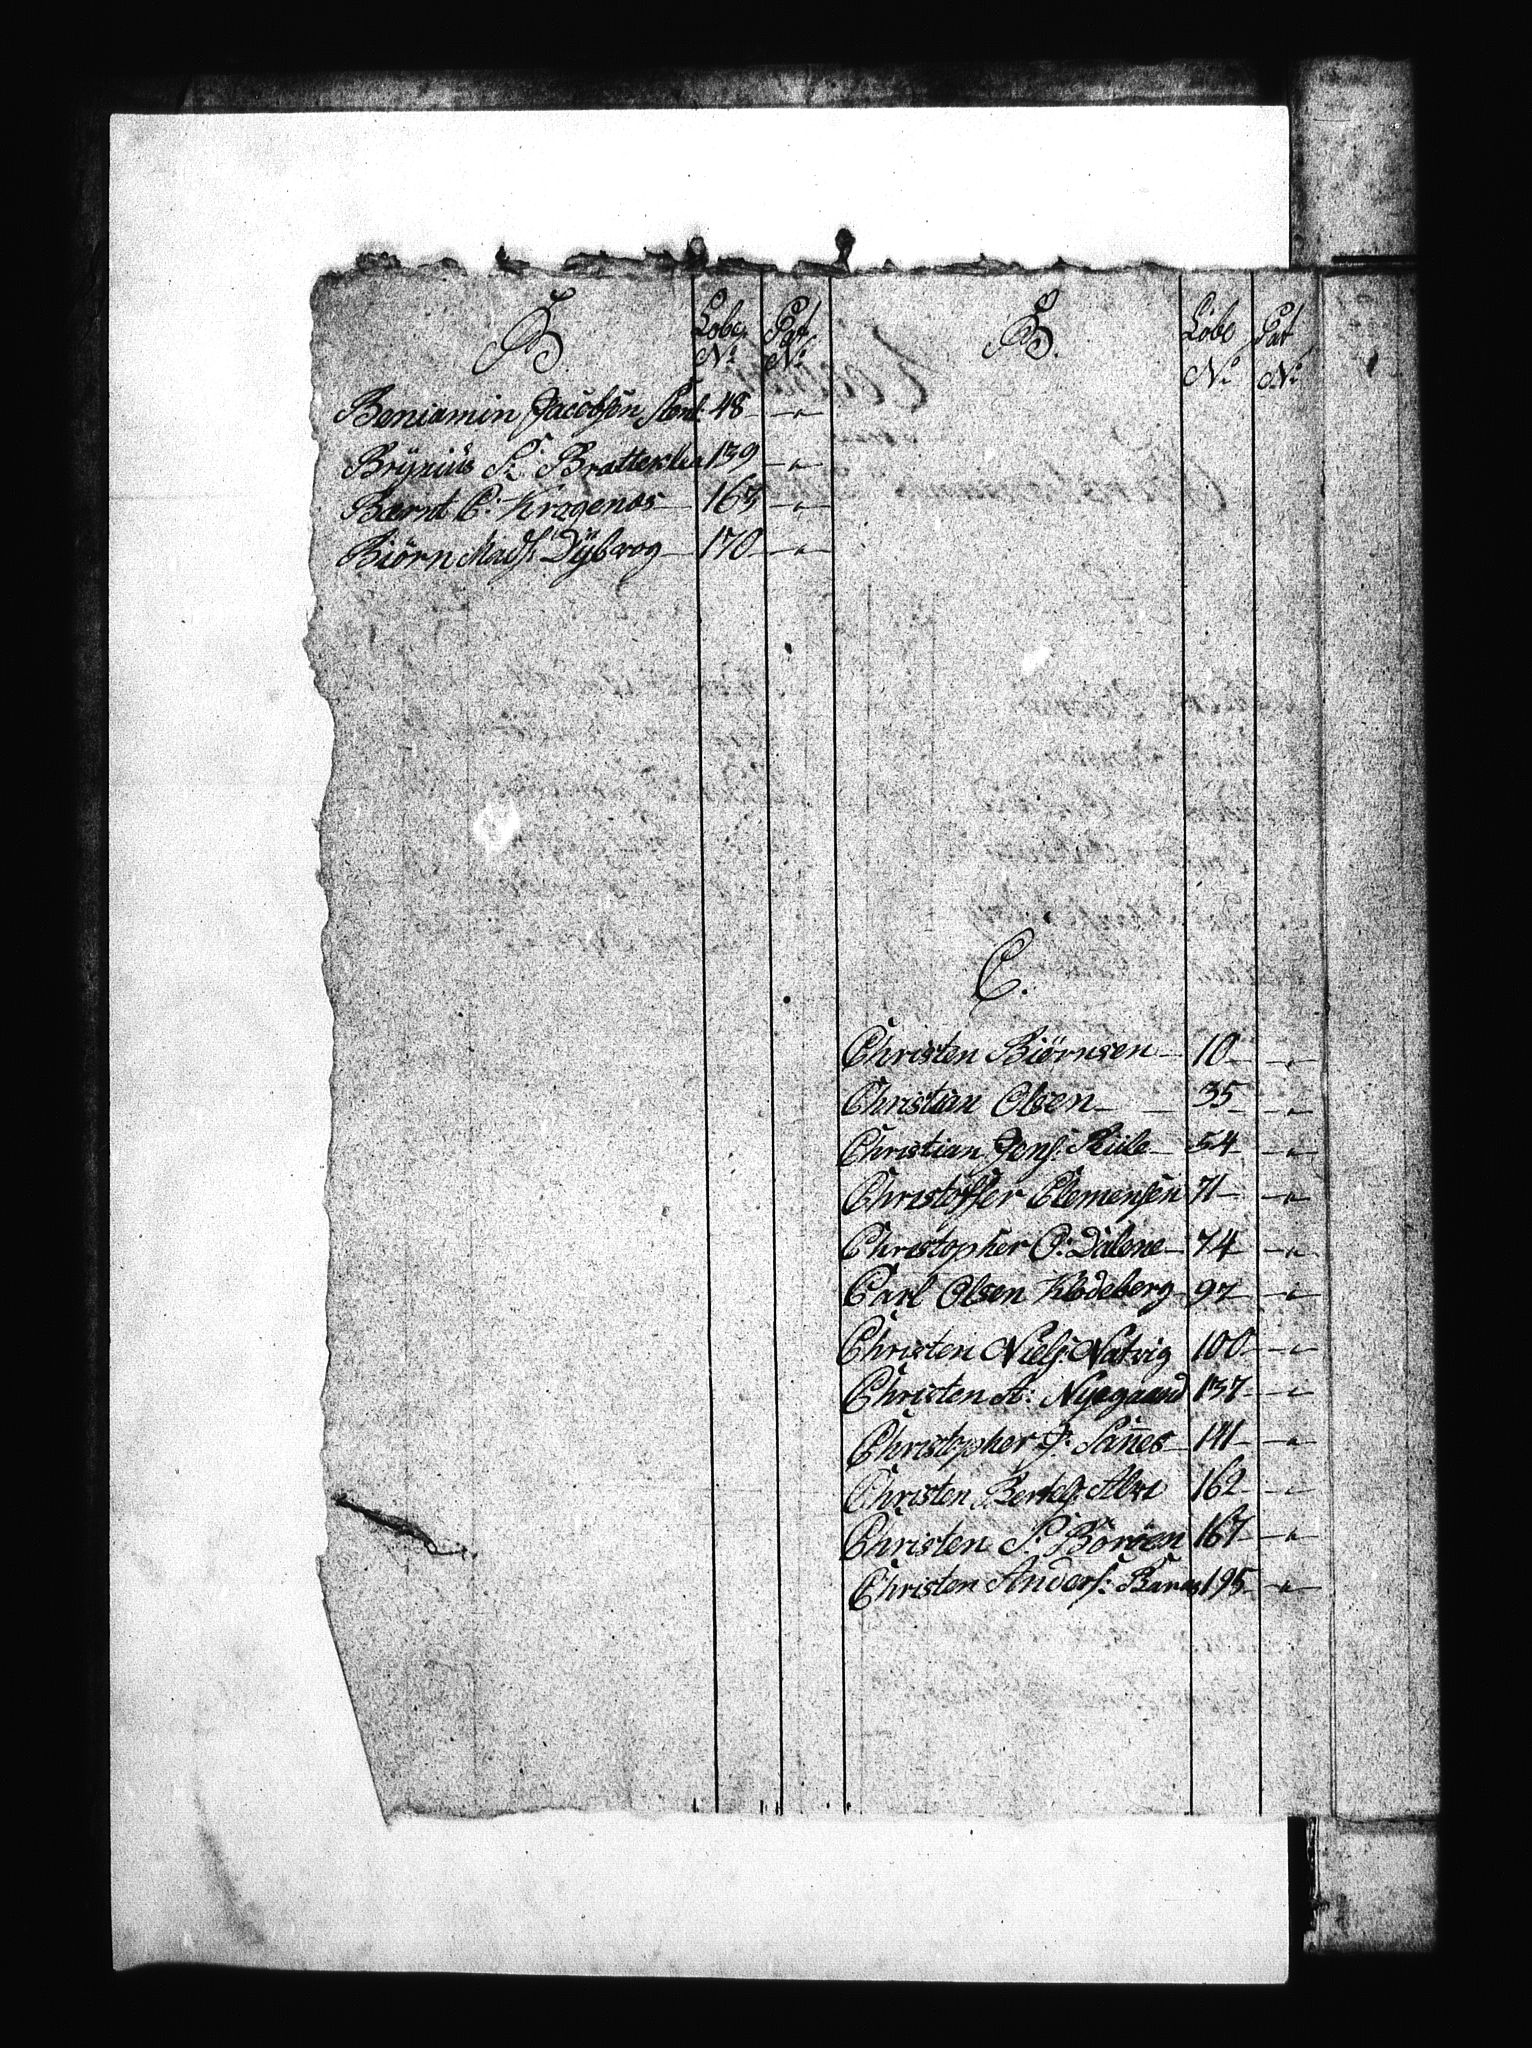 B.
Løbe No
Pat No
Beniamin Jacobsen 48 - " -
Brynius S: Bratteklev 139 - " -
Bærnt C: Kragenæs - 163 - " -
Biörn Mads: Dÿbvog - 170 - " -
B.
Løbe No
Pat No
C.
Christen Biörnsen - 10 - " -
Christian Olsen - 35 - " -
Christian Jens: - 54 - " -
Christoffer Clemensen 71 - " -
Christopher C: Dalene - 74 - " -
Carl Olsen Klodeberg - 97 - " -
Christen Niels: Natvig 100 - " -
Christen A: Nyegaard 137 - " -
Christopher J: Sannes - 141 - " -
Christen Bertels: Alve 162 - " -
Christen S: Boröen 167 - " -
Christen Anders: 195 - " -